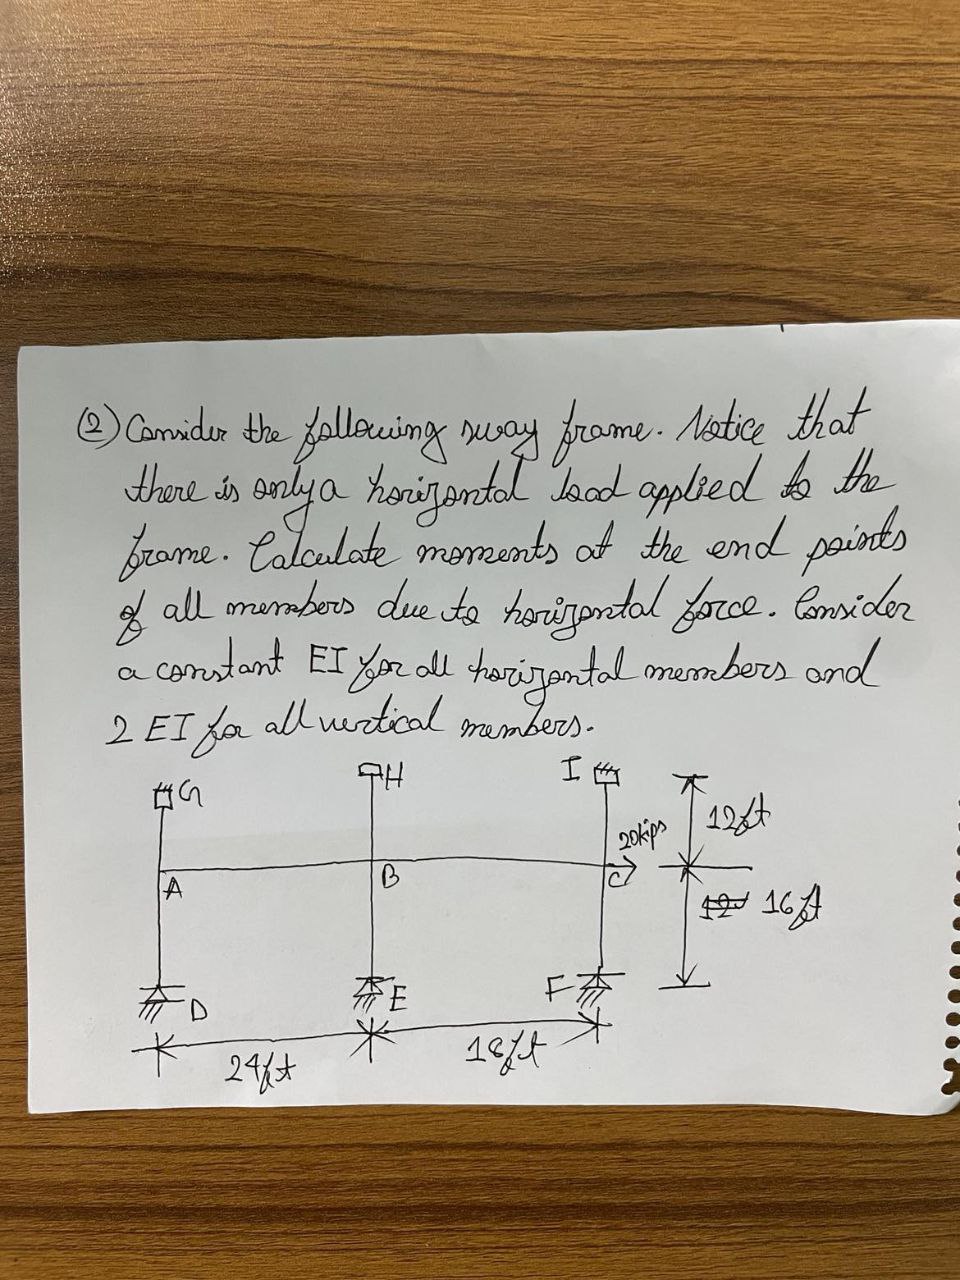 ② Consider the following sway frame. Notice that
there is only a horizontal load applied to the
frame. Calculate moments at the end points
of all members due to horizontal force. Consider
a constant EI for all horizontal members and
2 EI for all vertical members.
G H I
12ft
20kips
A B C
12 16ft
D E F
24ft 18ft